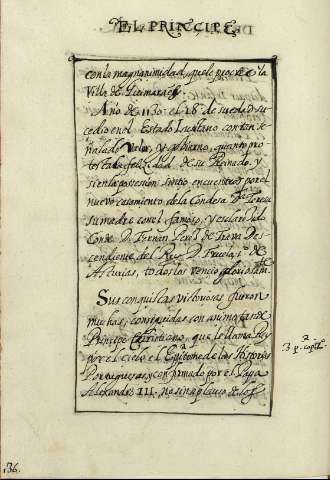 EL PRINCIPE
con la magnanimidad, que le procreó la
Villa de Guimaraes.
Año de 1130. el 18 de su edad su
cedio en el Estado Lusitano con tan se
ñalado Valor, y gobierno, quanto pro
testa la felicidad de su Reinado. y
si en la possesion sintio encuentros por el
nuevo casamiento de la Condesa D. Teresa
su madre con el famoso, y esclarido
Conde D. Fernan Perez de Trava Des
cendiente del Rey D. Fruela 1º de
Asturias, todos los venció gloriosam.te
Sus conquistas victoriosas fueron
muchas, conseguidas con animo tan de
Principe Christiano, que le llama Rey
por el Cielo el Epitome de las Historias
Portuguesas, y confirmado por el Papa
Alexandro III. no sin aplauso de los
3. p. cap. 2.
136.